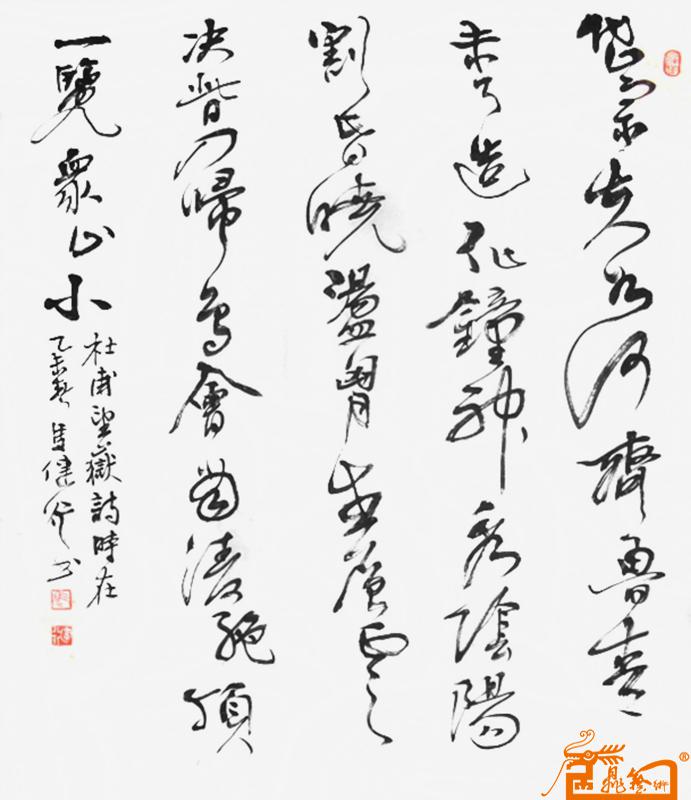 岱宗夫如何齊魯青
未了造化鐘神秀陰陽
割昏曉盪胷生層雲
决眥入歸鳥會當凌絶頂
一覽衆山小
杜甫望嶽詩時在
乙未春健书